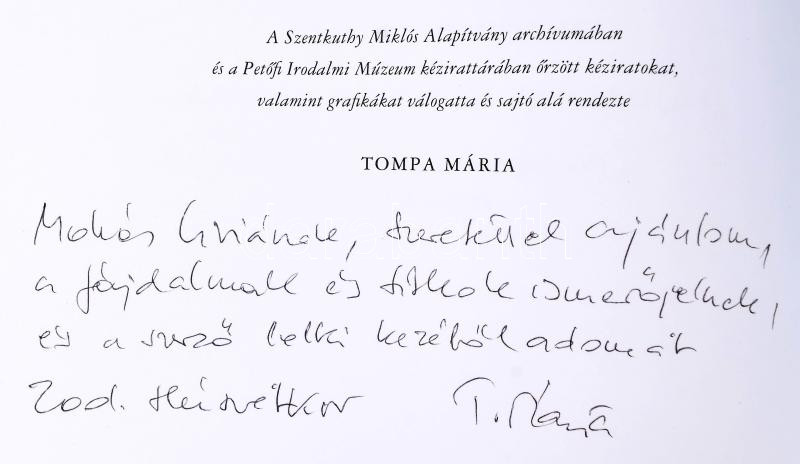 A Szentkuthy Miklós Alapítvány archívumában
és a Petőfi Irodalmi Múzeum kézirattárában őrzött kéziratokat,
valamint grafikákat válogatta és sajtó alá rendezte
TOMPA MÁRIA
Mohás Líviának, szeretettel ajánlom,
a fájdalmak és titkok ismerőjének,
és a szerző lelki kezéből adomát
Húsvétkor T. Mária